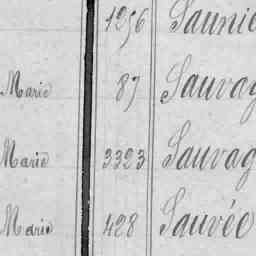 1256 Saunie
Marie 87 Sauvag
Marie 3323 Sauvag
Marie 428 Sauvée